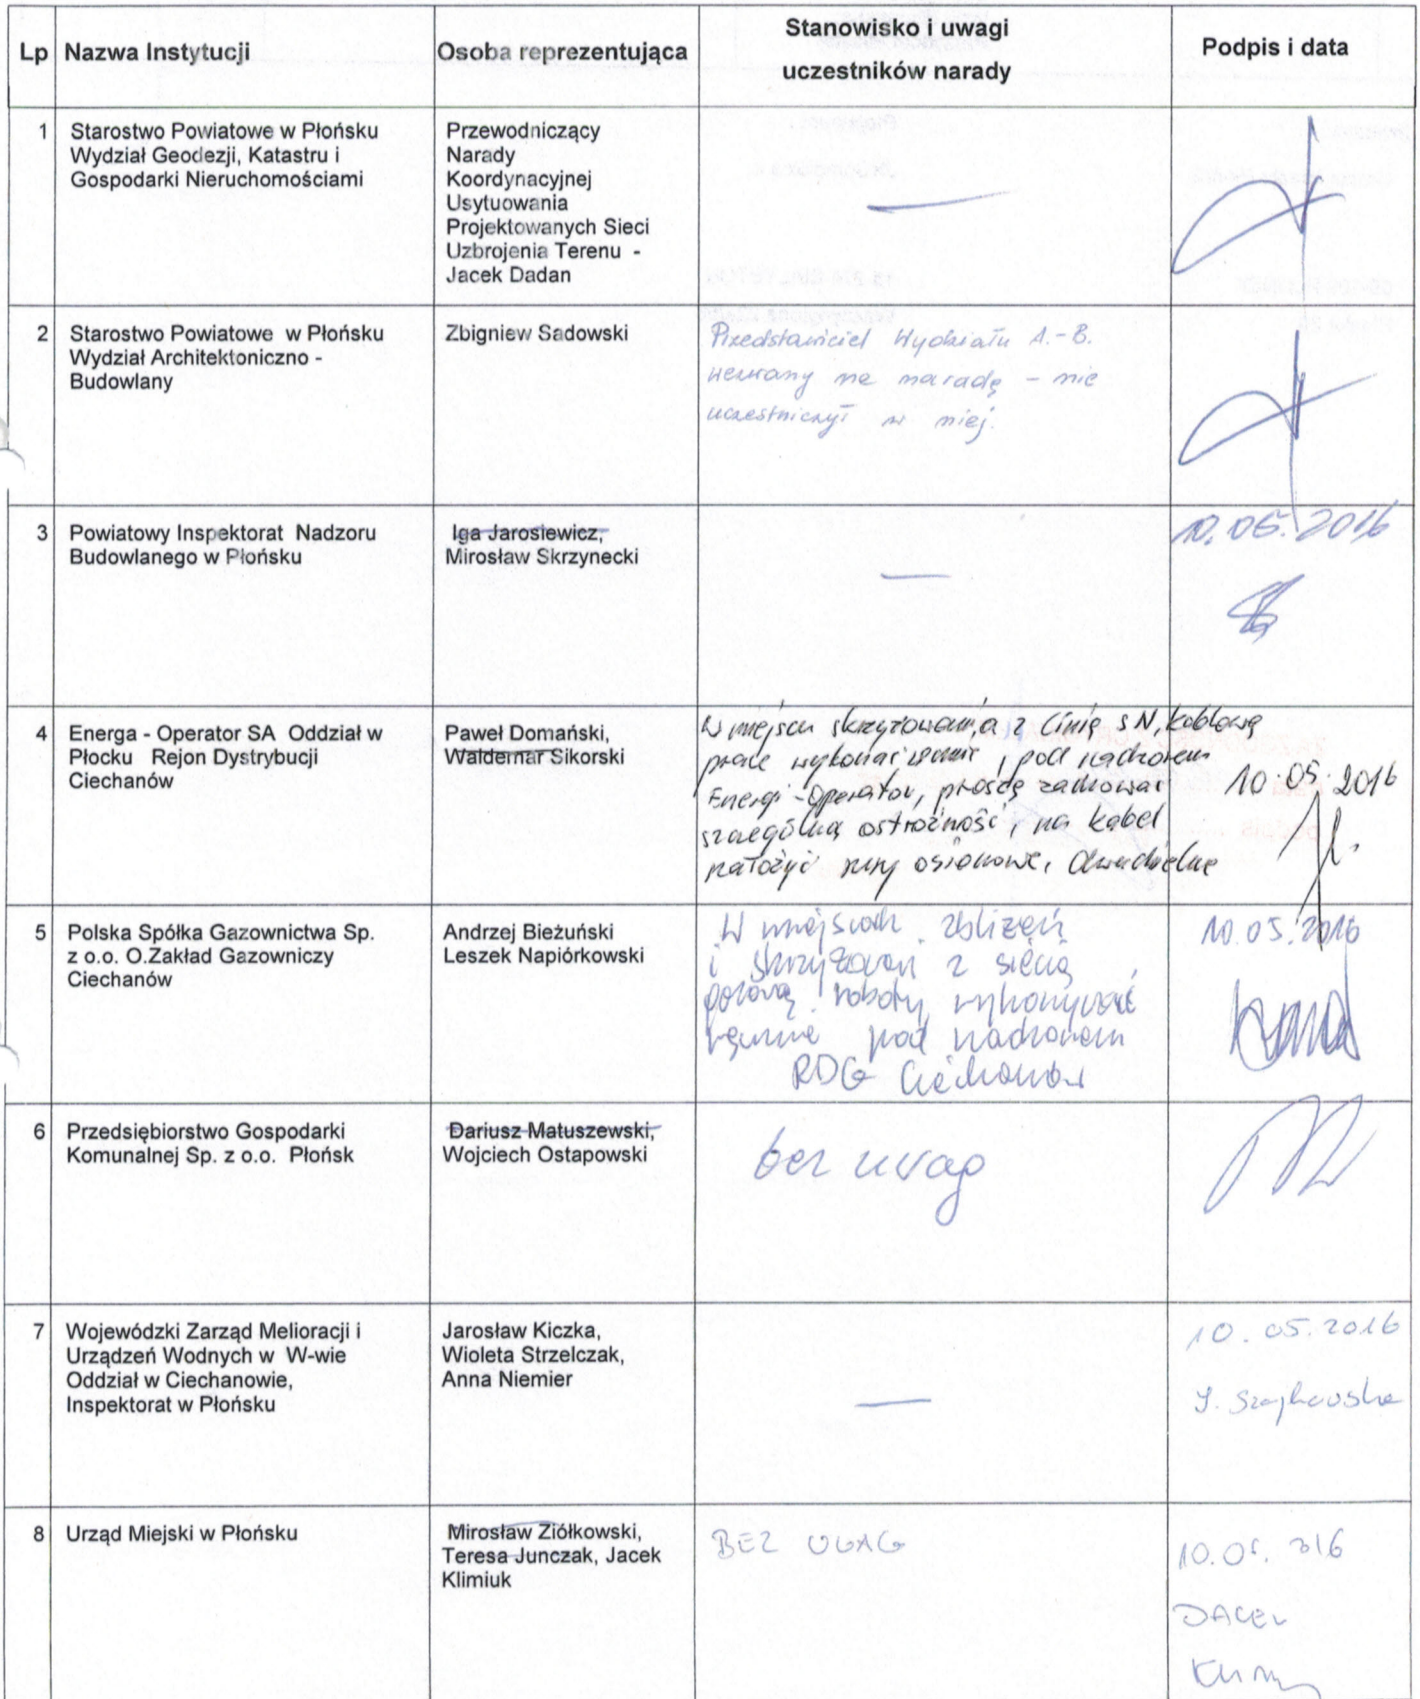 Lp Nazwa Instytucji Osoba reprezentująca Stanowisko i uwagi uczestników narady Podpis i data
1 Starostwo Powiatowe w Płońsku
Wydział Geodezji, Katastru i
Gospodarki Nieruchomościami
Przewodniczący
Narady
Koordynacyjnej
Usytuowania
Projektowanych Sieci
Uzbrojenia Terenu -
Jacek Dadan
—
2 Starostwo Powiatowe w Płońsku
Wydział Architektoniczno -
Budowlany
Zbigniew Sadowski
Przedstawiciel Wydziału A.-B.
wezwany na naradę - nie
uczestniczył w niej.
3 Powiatowy Inspektorat Nadzoru
Budowlanego w Płońsku
Iga Jarosiewicz,
Mirosław Skrzynecki
—
10.05.2016
4 Energa - Operator SA Oddział w
Płocku Rejon Dystrybucji
Ciechanów
Paweł Domański,
Waldemar Sikorski
W miejscu skrzyżowania z linią SN, kablową
prace wykonać ziemne, pod nadzorem
Energi-Operator, proszę zachować
szczególną ostrożność, na kabel
nałożyć rury osłonowe, dwudzielne
10.05.2016
5 Polska Spółka Gazownictwa Sp.
z o.o. O.Zakład Gazowniczy
Ciechanów
Andrzej Bieżuński
Leszek Napiórkowski
W miejscach zbliżeń
i skrzyżowań z siecią
gazową roboty wykonywać
ręcznie pod nadzorem
RDG Ciechanów
10.05.2016
6 Przedsiębiorstwo Gospodarki
Komunalnej Sp. z o.o. Płońsk
Dariusz Matuszewski,
Wojciech Ostapowski
bez uwag
7 Wojewódzki Zarząd Melioracji i
Urządzeń Wodnych w W-wie
Oddział w Ciechanowie,
Inspektorat w Płońsku
Jarosław Kiczka,
Wioleta Strzelczak,
Anna Niemier
—
10.05.2016
8 Urząd Miejski w Płońsku
Mirosław Ziółkowski,
Teresa Junczak, Jacek
Klimiuk
BEZ UWAG